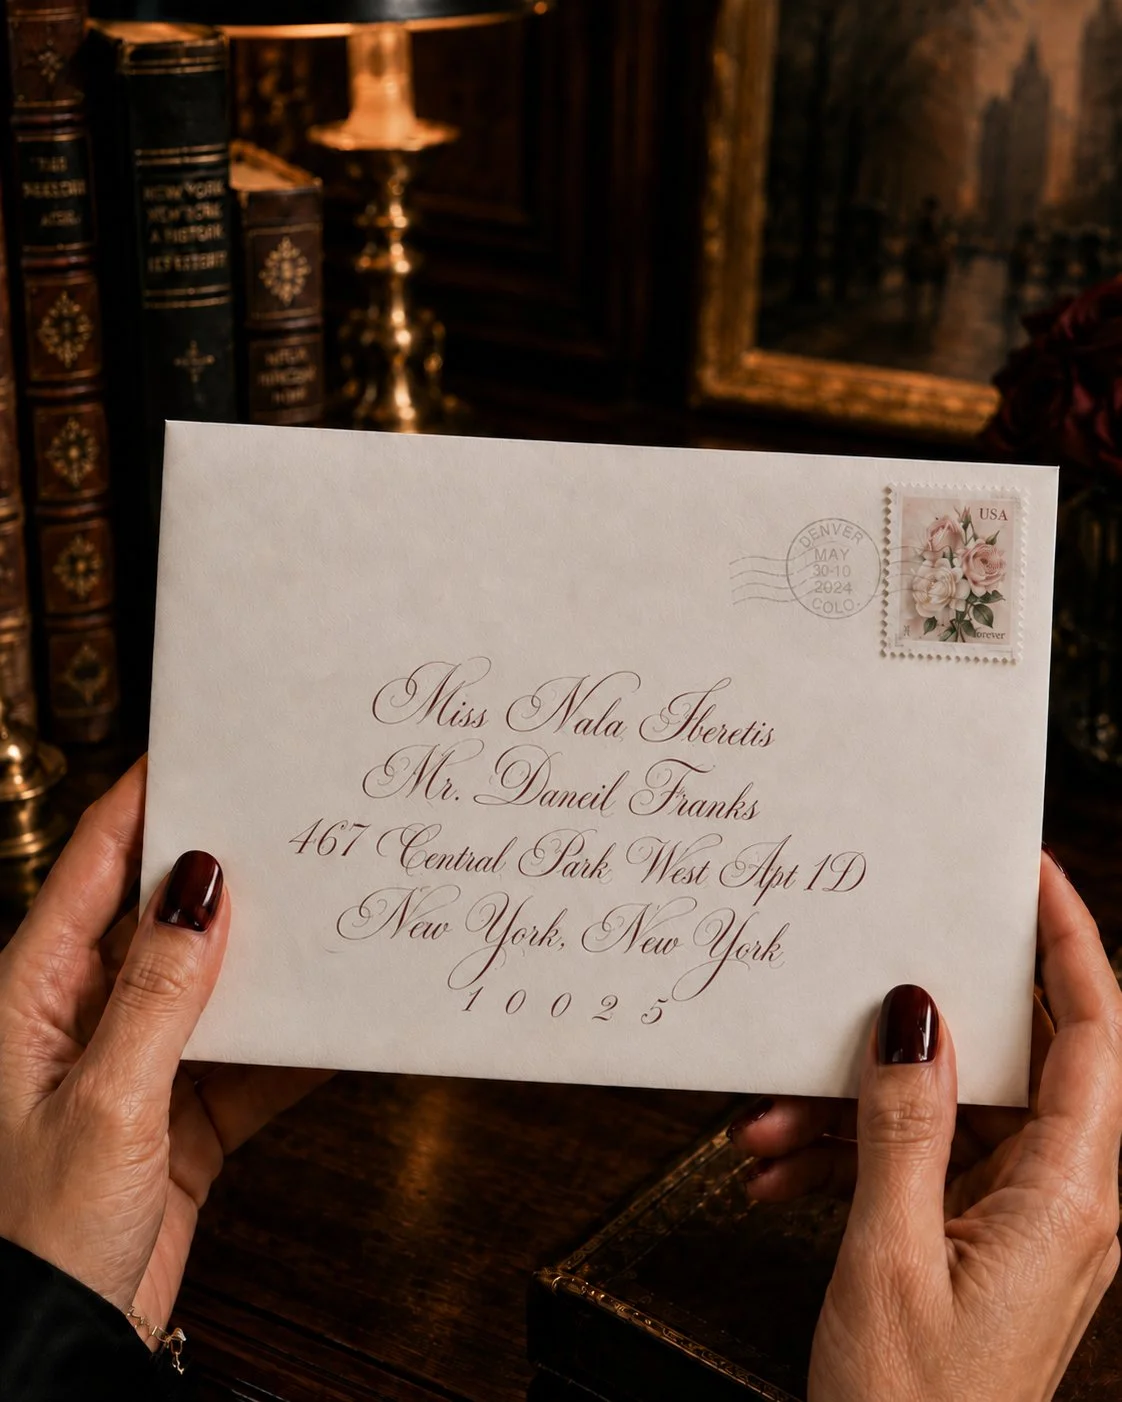 USA
DENVER
MAY
30-10
2024
COLO.
forever
Miss Nala Iberetis
Mr. Daneil Franks
467 Central Park West Apt 1D
New York, New York
10025